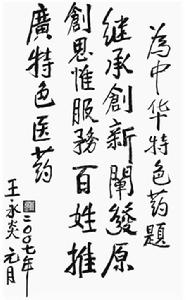 为中华特色药题
继承创新阐發原
創思惟服務百姓推
廣特色医药
王永炎
二〇〇七年元月